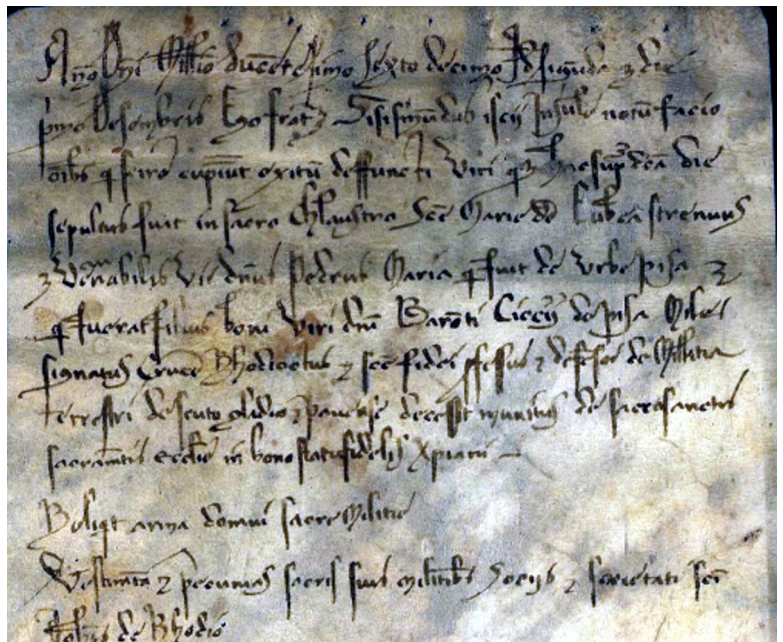 Año Dñi Millio ducetesimo sexto decimo Id signuda z die
pmo Desembris Ego frat Sisismundus insule notũ facio
oĩbs q scire cupiũt exitũ deffuncti Viri q die
sepultus fuit in sacro Chlaustro Scẽ Marie strenuus
z Venabilis Vir dñus Pedrus Maria q fuit de Urbe pisa z
q fuerat filius boni Viri dñi Baroti de pisa Miles
signatus Cruce Rhodioctus z scẽ fidei ffessus z defesor de Militia
terrestri de scuto gladio z pavense decessit munitus de sacrosanctis
sacramẽtis ecclie in bono statu fidelis Xpiani
Reliqt arma domui sacre Militie
Vestimẽta z pecunias sacris suis militibs Sociis z societati sci
Johis de Rhodio